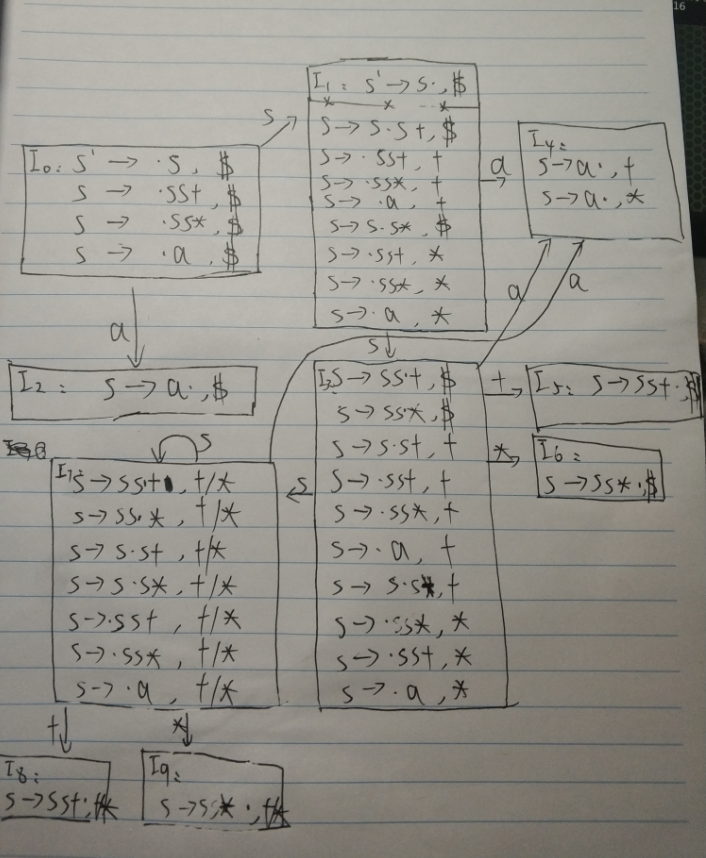 16
I₁: s' → s·, $
s → s·s+, $
s → ·ss+, +
s → ·ss*, +
s → ·a, +
s → s·s*, $
s → ·ss+, *
s → ·ss*, *
s → ·a, *
s
I₀: s' → ·s, $
s → ·ss+, $
s → ·ss*, $
s → ·a, $
a
I₄:
s → a·, +
s → a·, *
a
I₂: s → a·, $
s
a
a
I₃ s → ss·+, $
s → ss·*, $
s → s·s+, +
s → ·ss+, +
s → ·ss*, +
s → ·a, +
s → s·s*, +
s → ·ss*, *
s → ·ss+, *
s → ·a, *
+
I₅: s → ss+·, $
*
I₆:
s → ss*·, $
s
s
I₇ s → ss+, +/*
s → ss·*, +/*
s → s·s+, +/*
s → s·s*, +/*
s → ·ss+, +/*
s → ·ss*, +/*
s → ·a, +/*
+
*
I₈:
s → ss+·, +/*
I₉:
s → ss*·, +/*